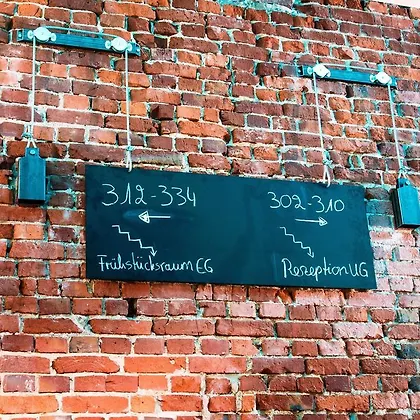 312-334
Frühstücksraum EG
302-310
Rezeption UG